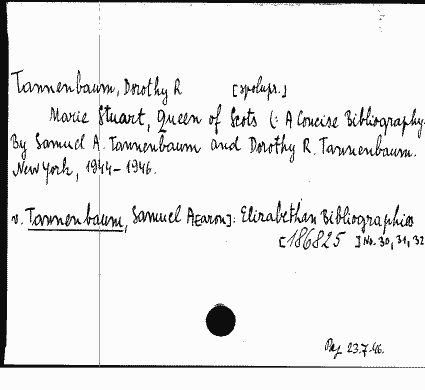 Tannenbaum, Dorothy R [spolupr.]
Marie Stuart, Queen of Scots (: A Concise Bibliography.
By Samuel A. Tannenbaum and Dorothy R. Tannenbaum.
New York, 1944-1946.
v. Tannenbaum, Samuel A[aron]: Elizabethan Bibliographies
[186825] No. 30, 31, 32
23.7.46.